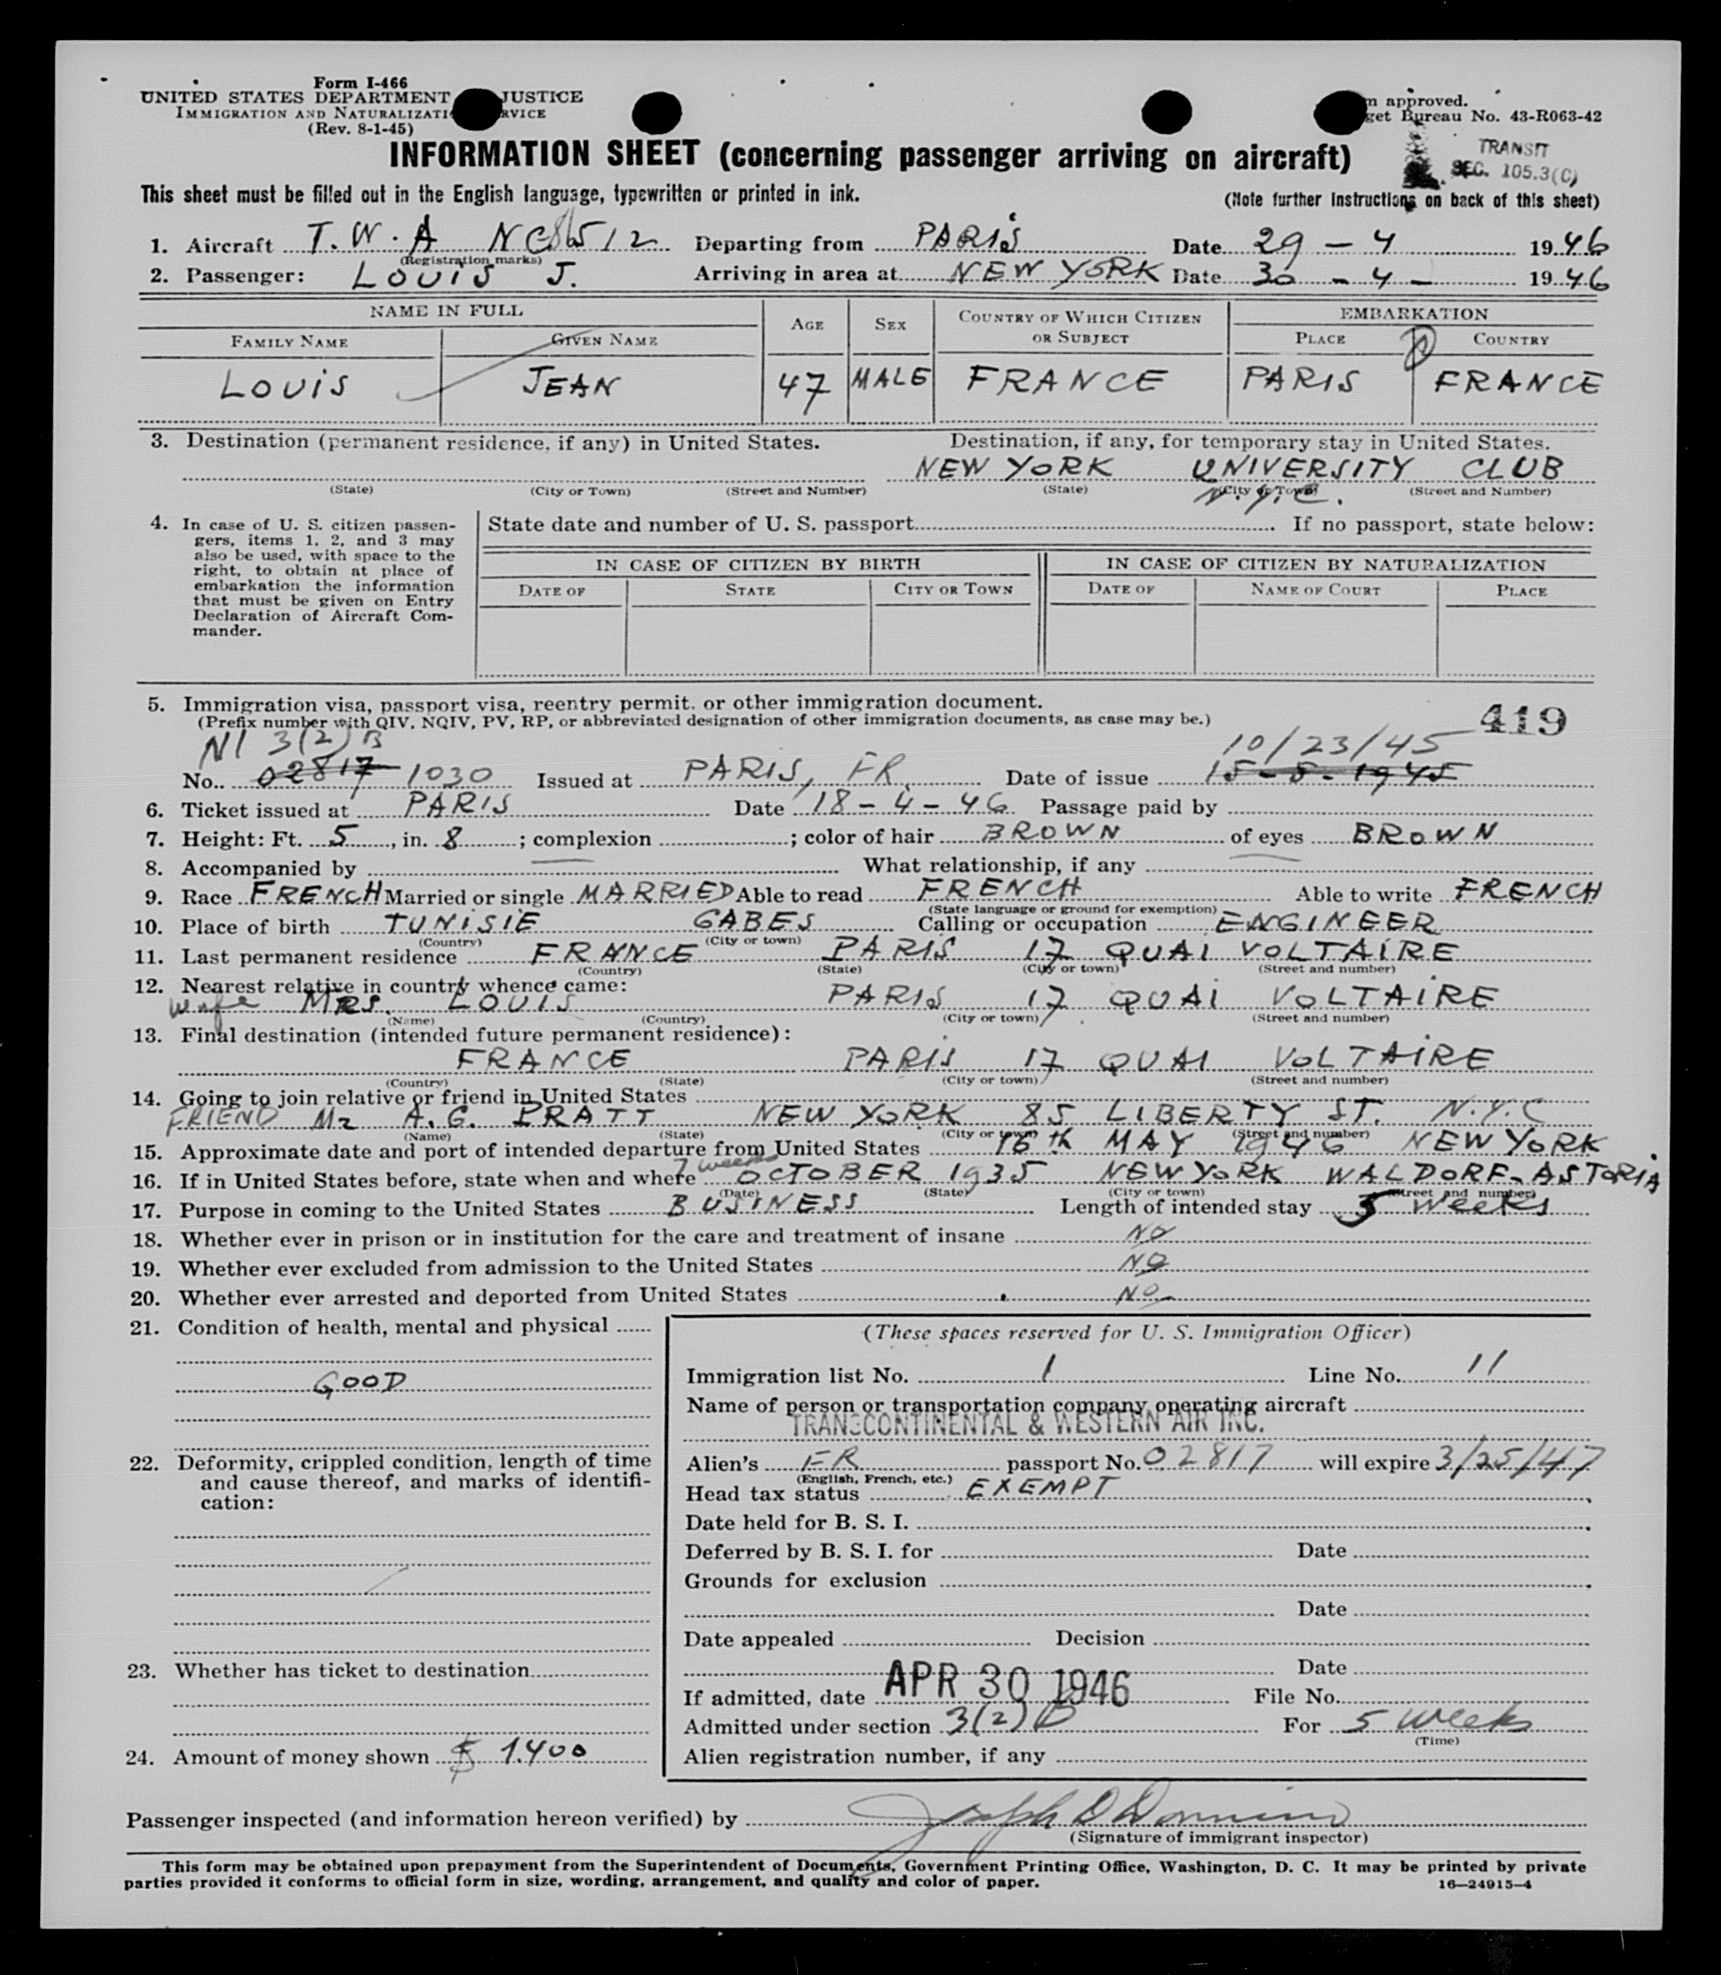 Form I-466
UNITED STATES DEPARTMENT JUSTICE
IMMIGRATION AND NATURALIZATI RVICE
(Rev. 8-1-45)
approved.
get Bureau No. 43-R063-42
TRANSIT
SEC. 105.3(C)
INFORMATION SHEET (concerning passenger arriving on aircraft)
This sheet must be filled out in the English language, typewritten or printed in ink.
(Note further instructions on back of this sheet)
1. Aircraft T.W.A NC86512 Departing from PARIS Date 29 - 4 1946
(Registration marks)
2. Passenger: LOUIS J. Arriving in area at NEW YORK Date 30 - 4 - 1946
NAME IN FULL AGE SEX COUNTRY OF WHICH CITIZEN OR SUBJECT EMBARKATION
FAMILY NAME GIVEN NAME PLACE COUNTRY
LOUIS JEAN 47 MALE FRANCE PARIS FRANCE
3. Destination (permanent residence, if any) in United States. Destination, if any, for temporary stay in United States.
NEW YORK UNIVERSITY CLUB
(State) (City or Town) (Street and Number) (State) (City or Town) (Street and Number)
N.Y.C.
4. In case of U. S. citizen passen-
gers, items 1, 2, and 3 may
also be used, with space to the
right, to obtain at place of
embarkation the information
that must be given on Entry
Declaration of Aircraft Com-
mander.
State date and number of U. S. passport. If no passport, state below:
IN CASE OF CITIZEN BY BIRTH IN CASE OF CITIZEN BY NATURALIZATION
DATE OF STATE CITY OR TOWN DATE OF NAME OF COURT PLACE
5. Immigration visa, passport visa, reentry permit, or other immigration document.
(Prefix number with QIV, NQIV, PV, RP, or abbreviated designation of other immigration documents, as case may be.)
419
NI 3(2) B 10/23/45
No. 02817 1030 Issued at PARIS, FR. Date of issue 15-5-1945
6. Ticket issued at PARIS Date 18-4-46 Passage paid by
7. Height: Ft. 5, in. 8; complexion; color of hair BROWN of eyes BROWN
8. Accompanied by What relationship, if any
9. Race FRENCH Married or single MARRIED Able to read FRENCH Able to write FRENCH
(State language or ground for exemption)
10. Place of birth TUNISIE GABES Calling or occupation ENGINEER
(Country) (City or town)
11. Last permanent residence FRANCE PARIS 17 QUAI VOLTAIRE
(Country) (State) (City or town) (Street and number)
12. Nearest relative in country whence came:
Wife MRS. LOUIS PARIS 17 QUAI VOLTAIRE
(Name) (Country) (City or town) (Street and number)
13. Final destination (intended future permanent residence):
FRANCE PARIS 17 QUAI VOLTAIRE
(Country) (State) (City or town) (Street and number)
14. Going to join relative or friend in United States
FRIEND Mr A. G. PRATT NEW YORK 85 LIBERTY ST. N.Y.C
(Name) (State) (City or town) (Street and number)
15. Approximate date and port of intended departure from United States 16th MAY 1946 NEW YORK
7 weeks
16. If in United States before, state when and where OCTOBER 1935 NEW YORK WALDORF-ASTORIA
(Date) (State) (City or town) (Street and number)
17. Purpose in coming to the United States BUSINESS Length of intended stay 5 weeks
18. Whether ever in prison or in institution for the care and treatment of insane NO
19. Whether ever excluded from admission to the United States NO
20. Whether ever arrested and deported from United States NO
21. Condition of health, mental and physical
GOOD
22. Deformity, crippled condition, length of time
and cause thereof, and marks of identifi-
cation:
23. Whether has ticket to destination
24. Amount of money shown $ 1.400
(These spaces reserved for U. S. Immigration Officer)
Immigration list No. 1 Line No. 11
Name of person or transportation company operating aircraft
TRANSCONTINENTAL & WESTERN AIR INC.
Alien's FR passport No. 02817 will expire 3/25/47
(English, French, etc.)
Head tax status EXEMPT
Date held for B. S. I.
Deferred by B. S. I. for Date
Grounds for exclusion
Date
Date appealed Decision
Date
If admitted, date APR 30 1946 File No.
Admitted under section 3(2) B For 5 weeks
(Time)
Alien registration number, if any
Passenger inspected (and information hereon verified) by Joseph
(Signature of immigrant inspector)
This form may be obtained upon prepayment from the Superintendent of Documents, Government Printing Office, Washington, D. C. It may be printed by private
parties provided it conforms to official form in size, wording, arrangement, and quality and color of paper.
16—24915-4